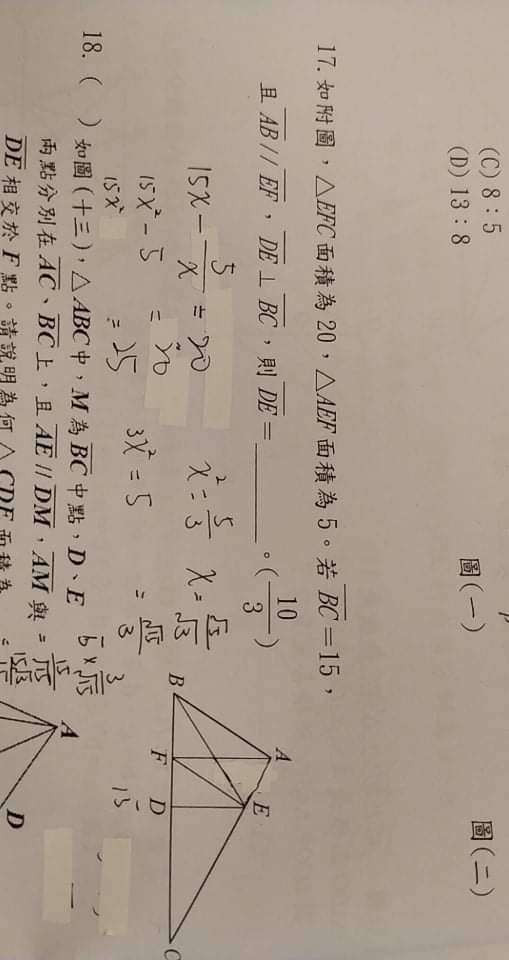 (C) 8：5
(D) 13：8
圖(一)
圖(二)
17. 如附圖，△EFC面積為20，△AEF面積為5。若BC=15，
且AB//EF，DE⊥BC，則DE=________。(10/3)
15x - 5/x = 20
x² = 5/3
15x² - 5 = 20
15x² = 25
3x² = 5
A
E
B F D C
15
18. (  ) 如圖(十三)，△ABC中，M為BC中點，D、E
兩點分別在AC、BC上，且AE//DM，AM與
DE相交於F點。請說明為何△CDF面積為
A
D